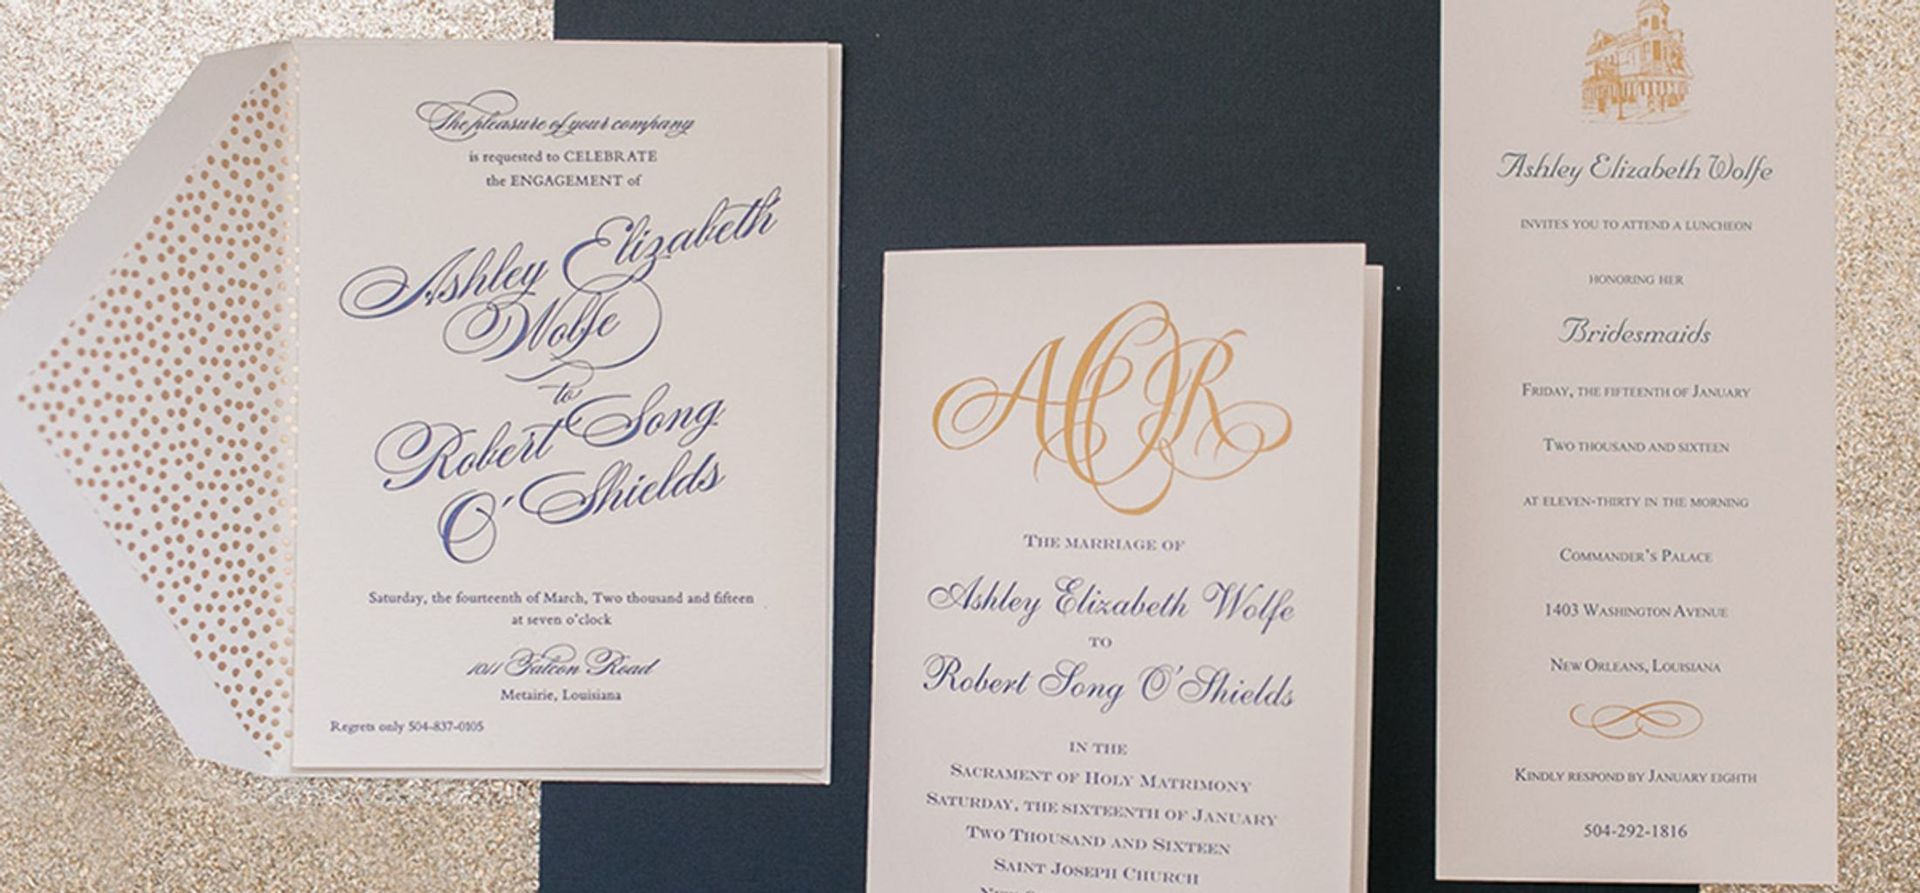 The pleasure of your company
is requested to CELEBRATE
the ENGAGEMENT of
Ashley Elizabeth
Wolfe
to
Robert Song
O'Shields
Saturday, the fourteenth of March, Two thousand and fifteen
at seven o'clock
1011 Falcon Road
Metairie, Louisiana
Regrets only 504-837-0105
AOR
THE MARRIAGE OF
Ashley Elizabeth Wolfe
TO
Robert Song O'Shields
IN THE
SACRAMENT OF HOLY MATRIMONY
SATURDAY, THE SIXTEENTH OF JANUARY
TWO THOUSAND AND SIXTEEN
SAINT JOSEPH CHURCH
Ashley Elizabeth Wolfe
INVITES YOU TO ATTEND A LUNCHEON
HONORING HER
Bridesmaids
FRIDAY, THE FIFTEENTH OF JANUARY
TWO THOUSAND AND SIXTEEN
AT ELEVEN-THIRTY IN THE MORNING
COMMANDER'S PALACE
1403 WASHINGTON AVENUE
NEW ORLEANS, LOUISIANA
KINDLY RESPOND BY JANUARY EIGHTH
504-292-1816